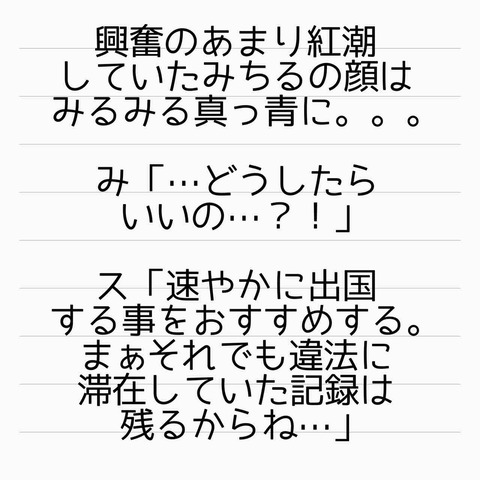 興奮のあまり紅潮
していたみちるの顔は
みるみる真っ青に。。。
み「…どうしたら
いいの…？！」
ス「速やかに出国
する事をおすすめする。
まぁそれでも違法に
滞在していた記録は
残るからね…」